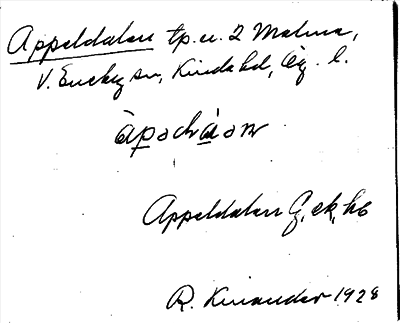 Appeldalen tp. u. 2 Malma,
V. Eneby sn, Kinda hd, Ög. l.
Appeldalen G, ek, hb
R. Kinander 1928